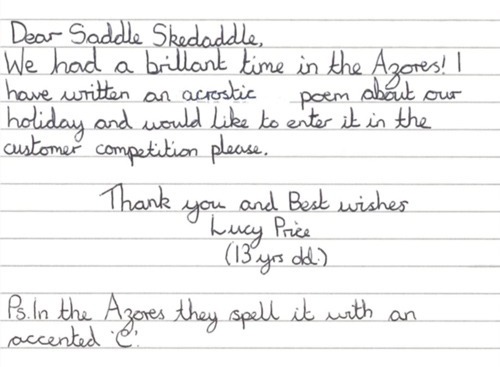 Dear Saddle Skedaddle,
We had a brillant time in the Azores! I
have written an acrostic poem about our
holiday and would like to enter it in the
customer competition please.
Thank you and Best wishes
Lucy Price
(13 yrs old.)
Ps. In the Azores they spell it with an
accented 'C'.